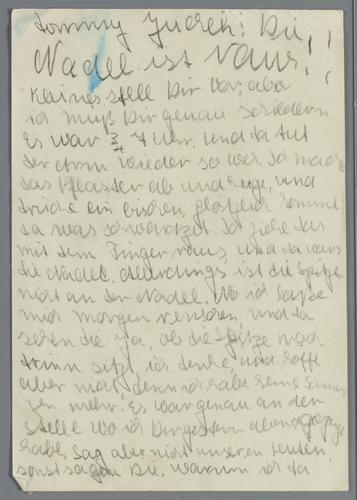 Tommy Juchei: Die
Nadel ist raus!!!
Kleines stell Dir vor, also
ich muß Dir genau schildern.
Es war 3/4 7 Uhr. und da tut
der Arm wieder so weh. Ich mache
das Pflaster ab und sage, und
drücke ein bischen, plötzlich kommt
da was schwarzes. Ich ziehe das
mit dem Finger raus, und da wars
die Nadel. Allerdings ist die Spitze
nicht an der Nadel. Na ich lasse
mich morgen röntgen, und da
sehen die ja, ob die Spitze noch
drinn sitzt, ich denke, und hoffe
aber nicht, denn ich habe keine Schmer-
zen mehr. Es war genau an der
Stelle wo ich Dir gestern abend gezeigt
habe. Sag aber nicht unseren Leuten,
sonst sagen Die, warum ich da